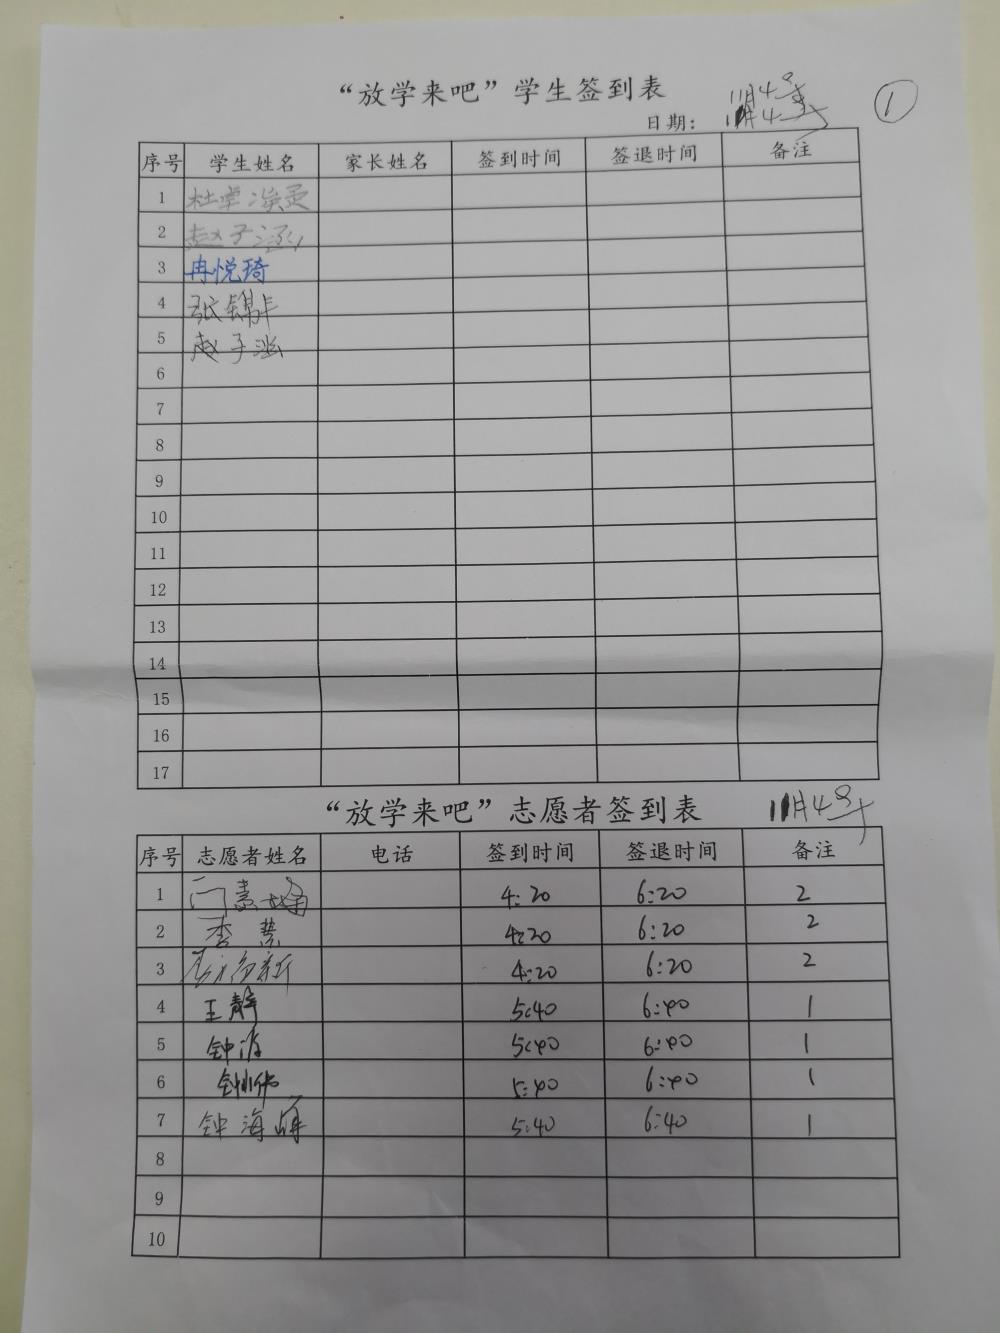 “放学来吧”学生签到表
11月4号
日期： 11月4号
①
序号 学生姓名 家长姓名 签到时间 签退时间 备注
1
2 赵子涵
3 冉悦琦
4 张锦
5 赵子涵
6
7
8
9
10
11
12
13
14
15
16
17
“放学来吧”志愿者签到表 11月4号
序号 志愿者姓名 电话 签到时间 签退时间 备注
1 闫 4:20 6:20 2
2 李慧 4:20 6:20 2
3 4:20 6:20 2
4 王静 5:40 6:40 1
5 钟海 5:40 6:40 1
6 钟 5:40 6:40 1
7 钟海峰 5:40 6:40 1
8
9
10